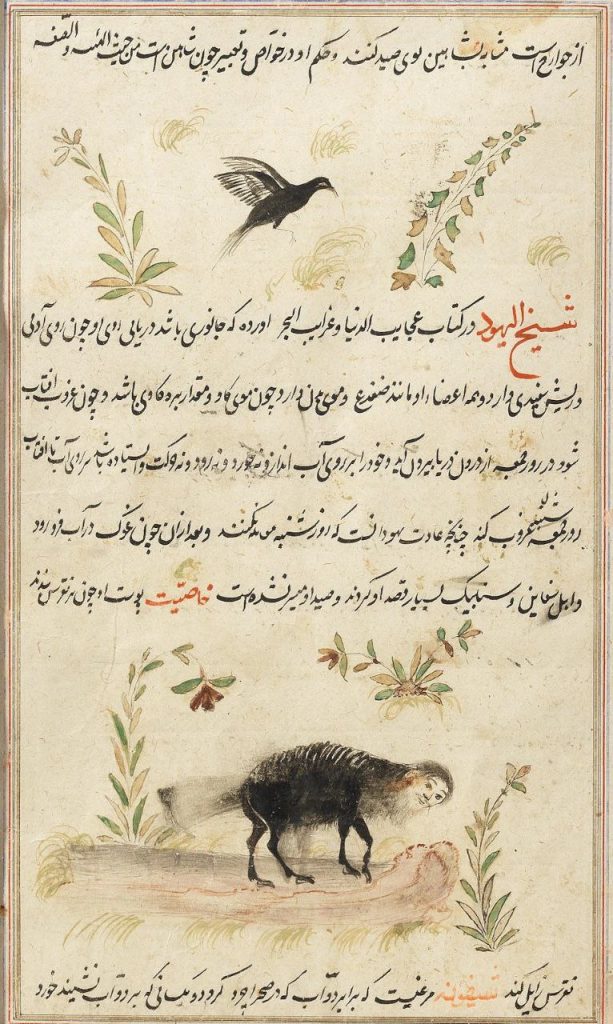 از جوارح است مشابه بشاهین بوی صید کنند و حکم او در خواص و تعبیر چون شاهین است من حیث اللغه و الصفه
شیخ الیهود در کتاب عجایب الدنیا و غرایب البحر آورده که جانوری باشد دریایی روی او چون روی آدمی
و ریش سفیدی دارد و همه اعضاء او مانند ضفدع و موی بدن دارد چون موی گاو و مقدار بره گاوی باشد و چون غروب آفتاب
شود در روز جمعه از درون دریا بیرون آید و خود را بر روی آب اندازد نه خورد و نه رود و نه حرکت و ایستاده باشد بر روی آب تا آفتاب
روز شنبه غروب کند چنانچه عادت یهود آنست که روز شنبه صید نکنند و بعد از آن چون غوک در آب فرو رود
و اهل سفاین و سنابیک بسیار قصد او کردند و صید او میسر نشده است خاصیت پوست او چون بر نقرس بندند
نقرس زایل کند شفنینه مرغیست که برابر دواب که در صحرا چرا کرده و مگسانی که بر دواب نشینند خورد